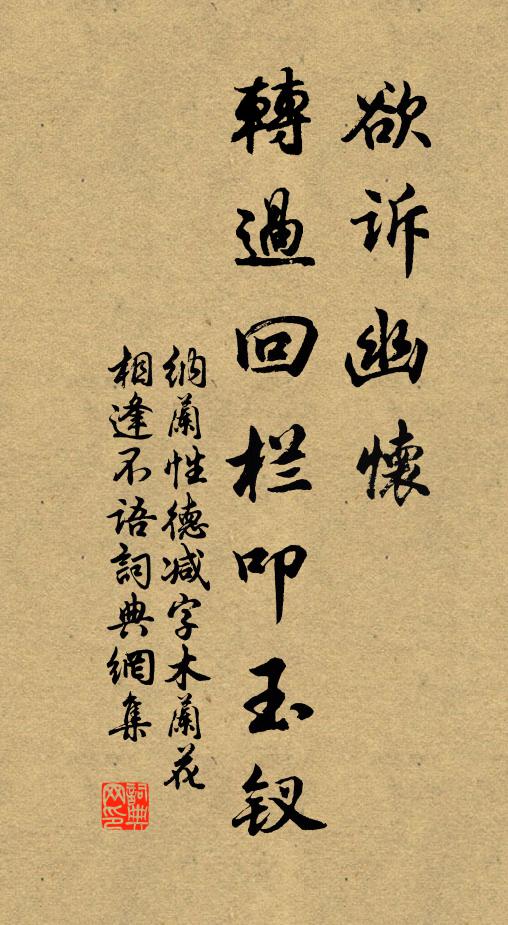 欲诉幽懷
轉過回栏叩玉钗
纳蘭性德减字木蘭花
相逢不语詞典網集
詞典网印